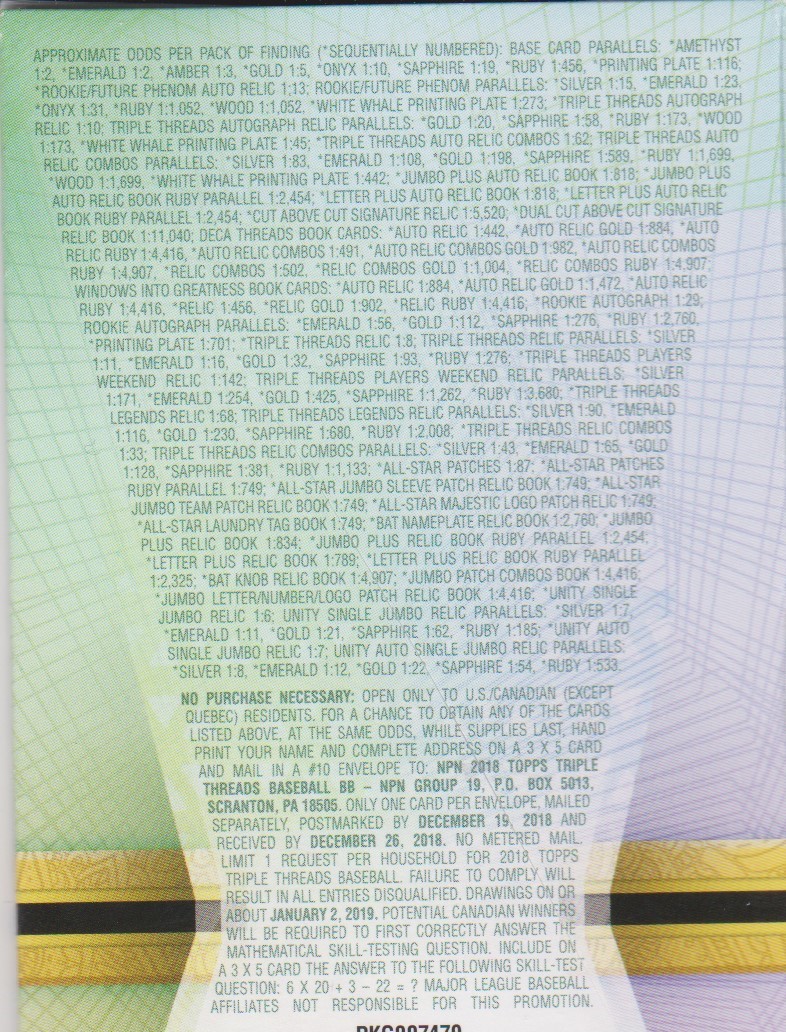 APPROXIMATE ODDS PER PACK OF FINDING (*SEQUENTIALLY NUMBERED): BASE CARD PARALLELS: *AMETHYST
1:2, *EMERALD 1:2, *AMBER 1:3, *GOLD 1:5, *ONYX 1:10, *SAPPHIRE 1:19, *RUBY 1:456, *PRINTING PLATE 1:116;
*ROOKIE/FUTURE PHENOM AUTO RELIC 1:13; ROOKIE/FUTURE PHENOM PARALLELS: *SILVER 1:15, *EMERALD 1:23,
*ONYX 1:31, *RUBY 1:1,052, *WOOD 1:1,052, *WHITE WHALE PRINTING PLATE 1:273; *TRIPLE THREADS AUTOGRAPH
RELIC 1:10; TRIPLE THREADS AUTOGRAPH RELIC PARALLELS: *GOLD 1:20, *SAPPHIRE 1:58, *RUBY 1:173, *WOOD
1:173, *WHITE WHALE PRINTING PLATE 1:45; *TRIPLE THREADS AUTO RELIC COMBOS 1:62; TRIPLE THREADS AUTO
RELIC COMBOS PARALLELS: *SILVER 1:83, *EMERALD 1:108, *GOLD 1:198, *SAPPHIRE 1:589, *RUBY 1:1,699,
*WOOD 1:1,699, *WHITE WHALE PRINTING PLATE 1:442; *JUMBO PLUS AUTO RELIC BOOK 1:818; *JUMBO PLUS
AUTO RELIC BOOK RUBY PARALLEL 1:2,454; *LETTER PLUS AUTO RELIC BOOK 1:818; *LETTER PLUS AUTO RELIC
BOOK RUBY PARALLEL 1:2,454; *CUT ABOVE CUT SIGNATURE RELIC 1:5,520; *DUAL CUT ABOVE CUT SIGNATURE
RELIC BOOK 1:11,040; DECA THREADS BOOK CARDS: *AUTO RELIC 1:442, *AUTO RELIC GOLD 1:884, *AUTO
RELIC RUBY 1:4,416, *AUTO RELIC COMBOS 1:491, *AUTO RELIC COMBOS GOLD 1:982, *AUTO RELIC COMBOS
RUBY 1:4,907, *RELIC COMBOS 1:502, *RELIC COMBOS GOLD 1:1,004, *RELIC COMBOS RUBY 1:4,907;
WINDOWS INTO GREATNESS BOOK CARDS: *AUTO RELIC 1:884, *AUTO RELIC GOLD 1:1,472, *AUTO RELIC
RUBY 1:4,416, *RELIC 1:456, *RELIC GOLD 1:902, *RELIC RUBY 1:4,416; *ROOKIE AUTOGRAPH 1:29;
ROOKIE AUTOGRAPH PARALLELS: *EMERALD 1:56, *GOLD 1:112, *SAPPHIRE 1:276, *RUBY 1:2,760,
*PRINTING PLATE 1:701; *TRIPLE THREADS RELIC 1:8; TRIPLE THREADS RELIC PARALLELS: *SILVER
1:11, *EMERALD 1:16, *GOLD 1:32, *SAPPHIRE 1:93, *RUBY 1:276; *TRIPLE THREADS PLAYERS
WEEKEND RELIC 1:142; TRIPLE THREADS PLAYERS WEEKEND RELIC PARALLELS: *SILVER
1:171, *EMERALD 1:254, *GOLD 1:425, *SAPPHIRE 1:1,262, *RUBY 1:3,680; *TRIPLE THREADS
LEGENDS RELIC 1:68; TRIPLE THREADS LEGENDS RELIC PARALLELS: *SILVER 1:90, *EMERALD
1:116, *GOLD 1:230, *SAPPHIRE 1:680, *RUBY 1:2,008; *TRIPLE THREADS RELIC COMBOS
1:33; TRIPLE THREADS RELIC COMBOS PARALLELS: *SILVER 1:43, *EMERALD 1:65, *GOLD
1:128, *SAPPHIRE 1:381, *RUBY 1:1,133; *ALL-STAR PATCHES 1:87; *ALL-STAR PATCHES
RUBY PARALLEL 1:749; *ALL-STAR JUMBO SLEEVE PATCH RELIC BOOK 1:749; *ALL-STAR
JUMBO TEAM PATCH RELIC BOOK 1:749; *ALL-STAR MAJESTIC LOGO PATCH RELIC 1:749;
*ALL-STAR LAUNDRY TAG BOOK 1:749; *BAT NAMEPLATE RELIC BOOK 1:2,760; *JUMBO
PLUS RELIC BOOK 1:834; *JUMBO PLUS RELIC BOOK RUBY PARALLEL 1:2,454;
*LETTER PLUS RELIC BOOK 1:789; *LETTER PLUS RELIC BOOK RUBY PARALLEL
1:2,325; *BAT KNOB RELIC BOOK 1:4,907; *JUMBO PATCH COMBOS BOOK 1:4,416;
*JUMBO LETTER/NUMBER/LOGO PATCH RELIC BOOK 1:4,416; *UNITY SINGLE
JUMBO RELIC 1:6; UNITY SINGLE JUMBO RELIC PARALLELS: *SILVER 1:7,
*EMERALD 1:11, *GOLD 1:21, *SAPPHIRE 1:62, *RUBY 1:185; *UNITY AUTO
SINGLE JUMBO RELIC 1:7; UNITY AUTO SINGLE JUMBO RELIC PARALLELS:
*SILVER 1:8, *EMERALD 1:12, *GOLD 1:22, *SAPPHIRE 1:54, *RUBY 1:533.
NO PURCHASE NECESSARY: OPEN ONLY TO U.S./CANADIAN (EXCEPT
QUEBEC) RESIDENTS. FOR A CHANCE TO OBTAIN ANY OF THE CARDS
LISTED ABOVE, AT THE SAME ODDS, WHILE SUPPLIES LAST, HAND
PRINT YOUR NAME AND COMPLETE ADDRESS ON A 3 X 5 CARD
AND MAIL IN A #10 ENVELOPE TO: NPN 2018 TOPPS TRIPLE
THREADS BASEBALL BB – NPN GROUP 19, P.O. BOX 5013,
SCRANTON, PA 18505. ONLY ONE CARD PER ENVELOPE, MAILED
SEPARATELY, POSTMARKED BY DECEMBER 19, 2018 AND
RECEIVED BY DECEMBER 26, 2018. NO METERED MAIL.
LIMIT 1 REQUEST PER HOUSEHOLD FOR 2018 TOPPS
TRIPLE THREADS BASEBALL. FAILURE TO COMPLY WILL
RESULT IN ALL ENTRIES DISQUALIFIED. DRAWINGS ON OR
ABOUT JANUARY 2, 2019. POTENTIAL CANADIAN WINNERS
WILL BE REQUIRED TO FIRST CORRECTLY ANSWER THE
MATHEMATICAL SKILL-TESTING QUESTION. INCLUDE ON
A 3 X 5 CARD THE ANSWER TO THE FOLLOWING SKILL-TEST
QUESTION: 6 X 20 + 3 – 22 = ? MAJOR LEAGUE BASEBALL
AFFILIATES NOT RESPONSIBLE FOR THIS PROMOTION.